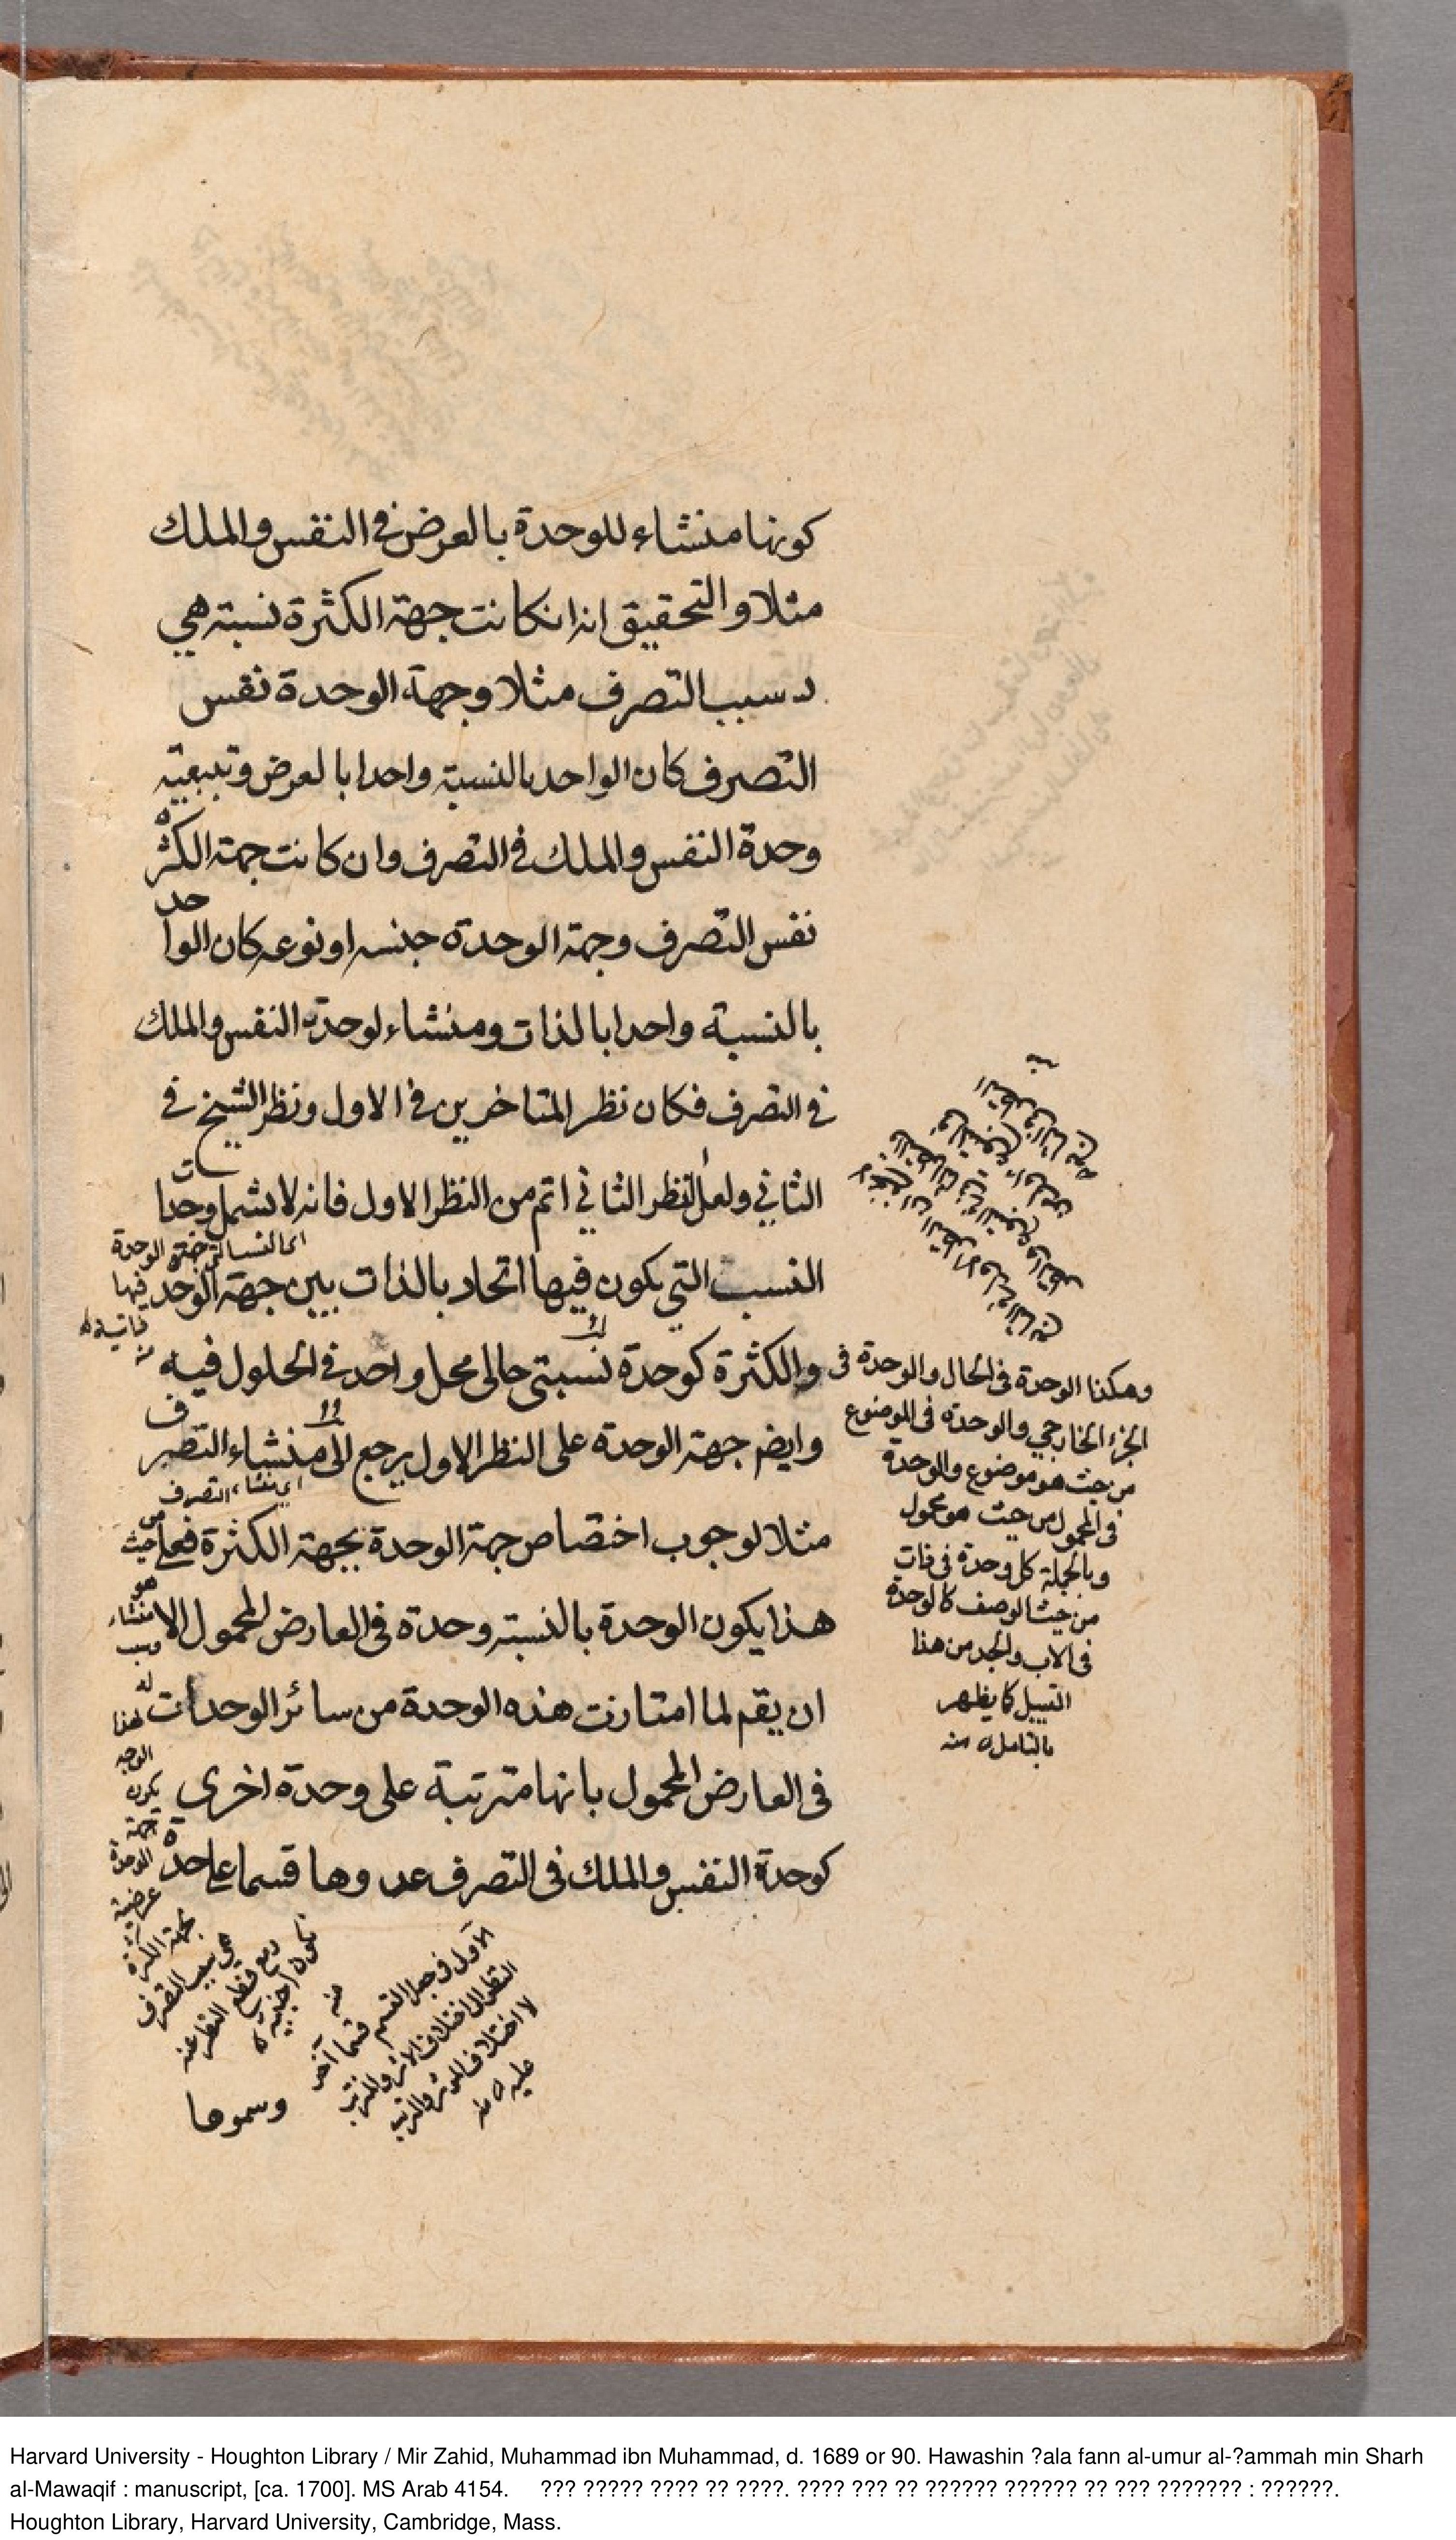 كونها منشاء للوحدة بالعرض في النفس والملك
مثلا والتحقيق انه ان كانت جهة الكثرة نسبة هي
سبب التصرف مثلا وجهة الوحدة نفس
التصرف كان الواحد بالنسبة واحدا بالعرض وتبعية
وحدة النفس والملك في التصرف وان كانت جهة الكثرة
نفس التصرف وجهة الوحدة جنسه او نوعه كان الواحد
بالنسبة واحدا بالذات ومنشاء لوحدة النفس والملك
في التصرف فكان نظر المتاخرين في الاول ونظر الشيخ في
الثاني ولعل النظر الثاني اتم من النظر الاول فانه لا يشمل وحدات
النسب التي يكون فيها اتحاد بالذات بين جهة الوحدة
والكثرة كوحدة نسبتي حال الى محل واحد في الحلول فيه
وايضم جهة الوحدة على النظر الاول يرجع الى منشاء التصرف
مثلا لوجوب اختصاص جهة الوحدة بجهة الكثرة فعلى
هذا يكون الوحدة بالنسبة وحدة في العارض المحمول الا
ان يقم لما امتازت هذه الوحدة من سائر الوحدات
في العارض المحمول بانها مترتبة على وحدة اخرى
كوحدة النفس والملك في التصرف عدوها قسما على حدة
وسموها
وهكذا الوحدة في الحال والوحدة في
الجزء الخارجي والوحدة في الموضوع
من حيث هو موضوع والوحدة
في المحمول من حيث هو محمول
وبالجملة كل وحدة في ذات
من حيث الوصف كالوحدة
في الاب والجد من هذا
القبيل كما يظهر
بالتامل منه
اي منشاء التصرف
من حيث
هو
منشاء
وسبب
له
لهذا
الوجه
يكون
جهة
الوحدة
عرضية
لجهة الكثرة
هي سبب التصرف
ومع قطع النظر عنه
تكون اجنبية
منه
الاول في جعل القسم قسما آخر
النظر الى اختلاف الاثر والمرتب
لا اختلاف المؤثر والمرتب
عليه منه
Harvard University - Houghton Library / Mir Zahid, Muhammad ibn Muhammad, d. 1689 or 90. Hawashin ?ala fann al-umur al-?ammah min Sharh
al-Mawaqif : manuscript, [ca. 1700]. MS Arab 4154. ??? ????? ???? ?? ????. ???? ??? ?? ?????? ?????? ?? ??? ??????? : ??????.
Houghton Library, Harvard University, Cambridge, Mass.